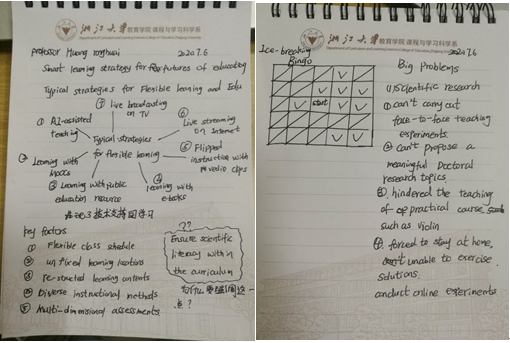 浙江大学教育学院 课程与学习科学系
professor Huang ronghuai 2020.7.6
Smart learning strategy for futures of education
Typical strategies for Flexible learning and Edu
⑦ live broadcasting
on TV
① AI-assisted
teaching
⑥
Live streaming
on Internet
Typical strategies
for flexible learning
② Learning with
MOOCs
⑤ Flipped
instruction with
video clips
③ Learning with public
education resource
④
learning with
e-books
技术支持的学习
key factors
① Flexible class shedule
② un fixed learning locations
③ Re-structed learning contents
④ Diverse instructional methods
⑤ Multi-dimensional assessments
??
Ensure scientific
literacy within
the curriculum
为什么要强调这一
点？
浙江大学教育学院 课程与学习科学系
Ice-breaking 2020.7.6
Bingo
start
Big problems
(1) Scientific research
① can't carry out
face-to-face teaching
experiments.
② can't propose a
meaningful Doctoral
research topics
hindered the teaching
of practical course,
such as violin
forced to stay at home,
unable to exercise.
solutions.
conduct online experiments